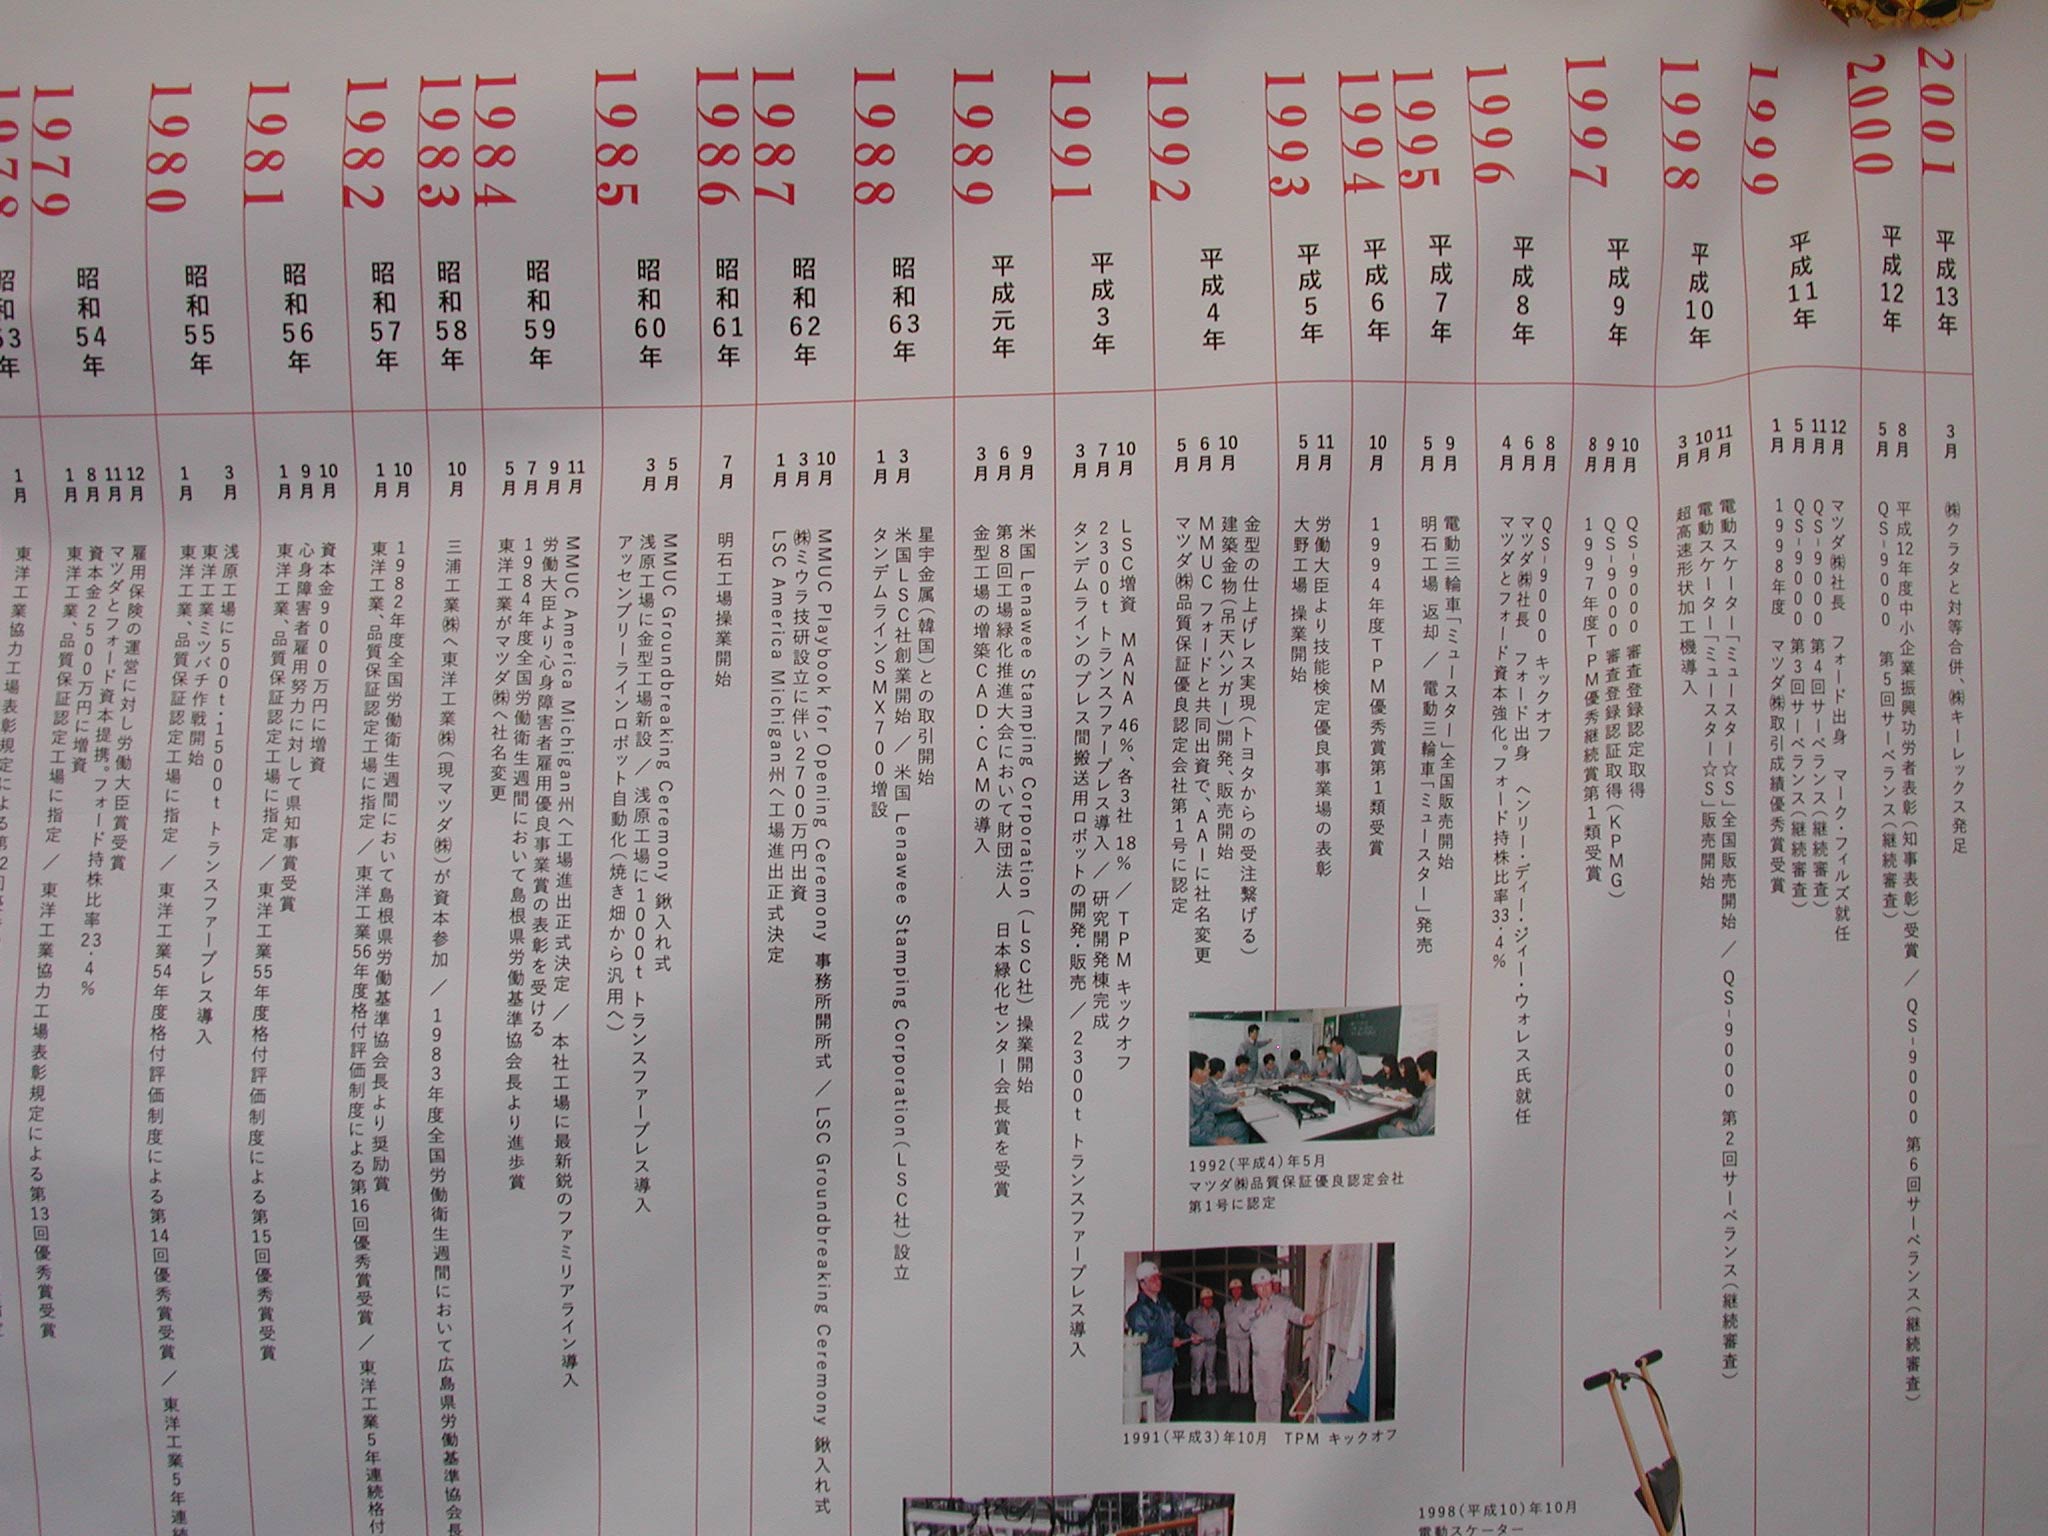 2001
平成13年
3月
㈱クラタと対等合併、㈱キーレックス発足
2000
平成12年
8月
平成12年度中小企業振興功労者表彰(知事表彰)受賞 / QS-9000 第6回サーベランス(継続審査)
5月
QS-9000 第5回サーベランス(継続審査)
1999
平成11年
12月
マツダ㈱社長 フォード出身 マーク・フィルズ就任
11月
QS-9000 第4回サーベランス(継続審査)
5月
QS-9000 第3回サーベランス(継続審査)
1月
1998年度 マツダ㈱取引成績優秀賞受賞
1998
平成10年
11月
電動スケーター「ミュースター☆S」全国販売開始 / QS-9000 第2回サーベランス(継続審査)
10月
電動スケーター「ミュースター☆S」販売開始
3月
超高速形状加工機導入
1997
平成9年
10月
QS-9000 審査登録認定取得
9月
QS-9000 審査登録認証取得(KPMG)
8月
1997年度TPM優秀継続賞第1類受賞
1996
平成8年
8月
QS-9000 キックオフ
6月
マツダ㈱社長 フォード出身 ヘンリー・ディー・ジィー・ウォレス氏就任
4月
マツダとフォード資本強化。フォード持株比率33.4%
1995
平成7年
9月
電動三輪車「ミュースター」全国販売開始
5月
明石工場 返却 / 電動三輪車「ミュースター」発売
1994
平成6年
10月
1994年度TPM優秀賞第1類受賞
1993
平成5年
11月
労働大臣より技能検定優良事業場の表彰
5月
大野工場 操業開始
1992
平成4年
10月
金型の仕上げレス実現(トヨタからの受注繋げる)
建築金物(吊天ハンガー)開発、販売開始
6月
MMUC フォードと共同出資で、AAIに社名変更
5月
マツダ㈱品質保証優良認定会社第1号に認定
1991
平成3年
10月
LSC増資 MANA 46%、各3社 18% / TPM キックオフ
7月
2300t トランスファープレス導入 / 研究開発棟完成
3月
タンデムラインのプレス間搬送用ロボットの開発・販売 / 2300t トランスファープレス導入
1989
平成元年
9月
米国 Lenawee Stamping Corporation (LSC社) 操業開始
6月
第8回工場緑化推進大会において財団法人 日本緑化センター会長賞を受賞
3月
金型工場の増築CAD・CAMの導入
1988
昭和63年
星宇金属(韓国)との取引開始
3月
米国LSC社創業開始 / 米国 Lenawee Stamping Corporation(LSC社)設立
1月
タンデムラインSMX700増設
1987
昭和62年
10月
MMUC Playbook for Opening Ceremony 事務所開所式 / LSC Groundbreaking Ceremony 鍬入れ式
3月
㈱ミウラ技研設立に伴い2700万円出資
1月
LSC America Michigan州へ工場進出正式決定
1986
昭和61年
7月
明石工場操業開始
1985
昭和60年
5月
MMUC Groundbreaking Ceremony 鍬入れ式
3月
浅原工場に金型工場新設 / 浅原工場に1000t トランスファープレス導入
アッセンブリーラインロボット自動化(焼き畑から汎用へ)
1984
昭和59年
11月
MMUC America Michigan州へ工場進出正式決定 / 本社工場に最新鋭のファミリアライン導入
9月
労働大臣より心身障害者雇用優良事業賞の表彰を受ける
7月
1984年度全国労働衛生週間において島根県労働基準協会長より進歩賞
5月
東洋工業がマツダ㈱へ社名変更
1983
昭和58年
10月
三浦工業㈱へ東洋工業㈱(現マツダ㈱)が資本参加 / 1983年度全国労働衛生週間において広島県労働基準協会長
1982
昭和57年
10月
1982年度全国労働衛生週間において島根県労働基準協会長より奨励賞
1月
東洋工業、品質保証認定工場に指定 / 東洋工業56年度格付評価制度による第16回優秀賞受賞 / 東洋工業5年連続格付
1981
昭和56年
10月
資本金9000万円に増資
9月
心身障害者雇用努力に対して県知事賞受賞
1月
東洋工業、品質保証認定工場に指定 / 東洋工業55年度格付評価制度による第15回優秀賞受賞
1980
昭和55年
3月
浅原工場に500t・1500t トランスファープレス導入
東洋工業ミツバチ作戦開始
1月
東洋工業、品質保証認定工場に指定 / 東洋工業54年度格付評価制度による第14回優秀賞受賞 / 東洋工業5年連続
1979
昭和54年
12月
雇用保険の運営に対し労働大臣賞受賞
11月
マツダとフォード資本提携。フォード持株比率23.4%
8月
資本金2500万円に増資
1月
東洋工業、品質保証認定工場に指定 / 東洋工業協力工場表彰規定による第13回優秀賞受賞
1978
昭和53年
1月
東洋工業協力工場表彰規定による第12回
1992(平成4)年5月
マツダ㈱品質保証優良認定会社
第1号に認定
1991(平成3)年10月 TPM キックオフ
1998(平成10)年10月
電動スケーター